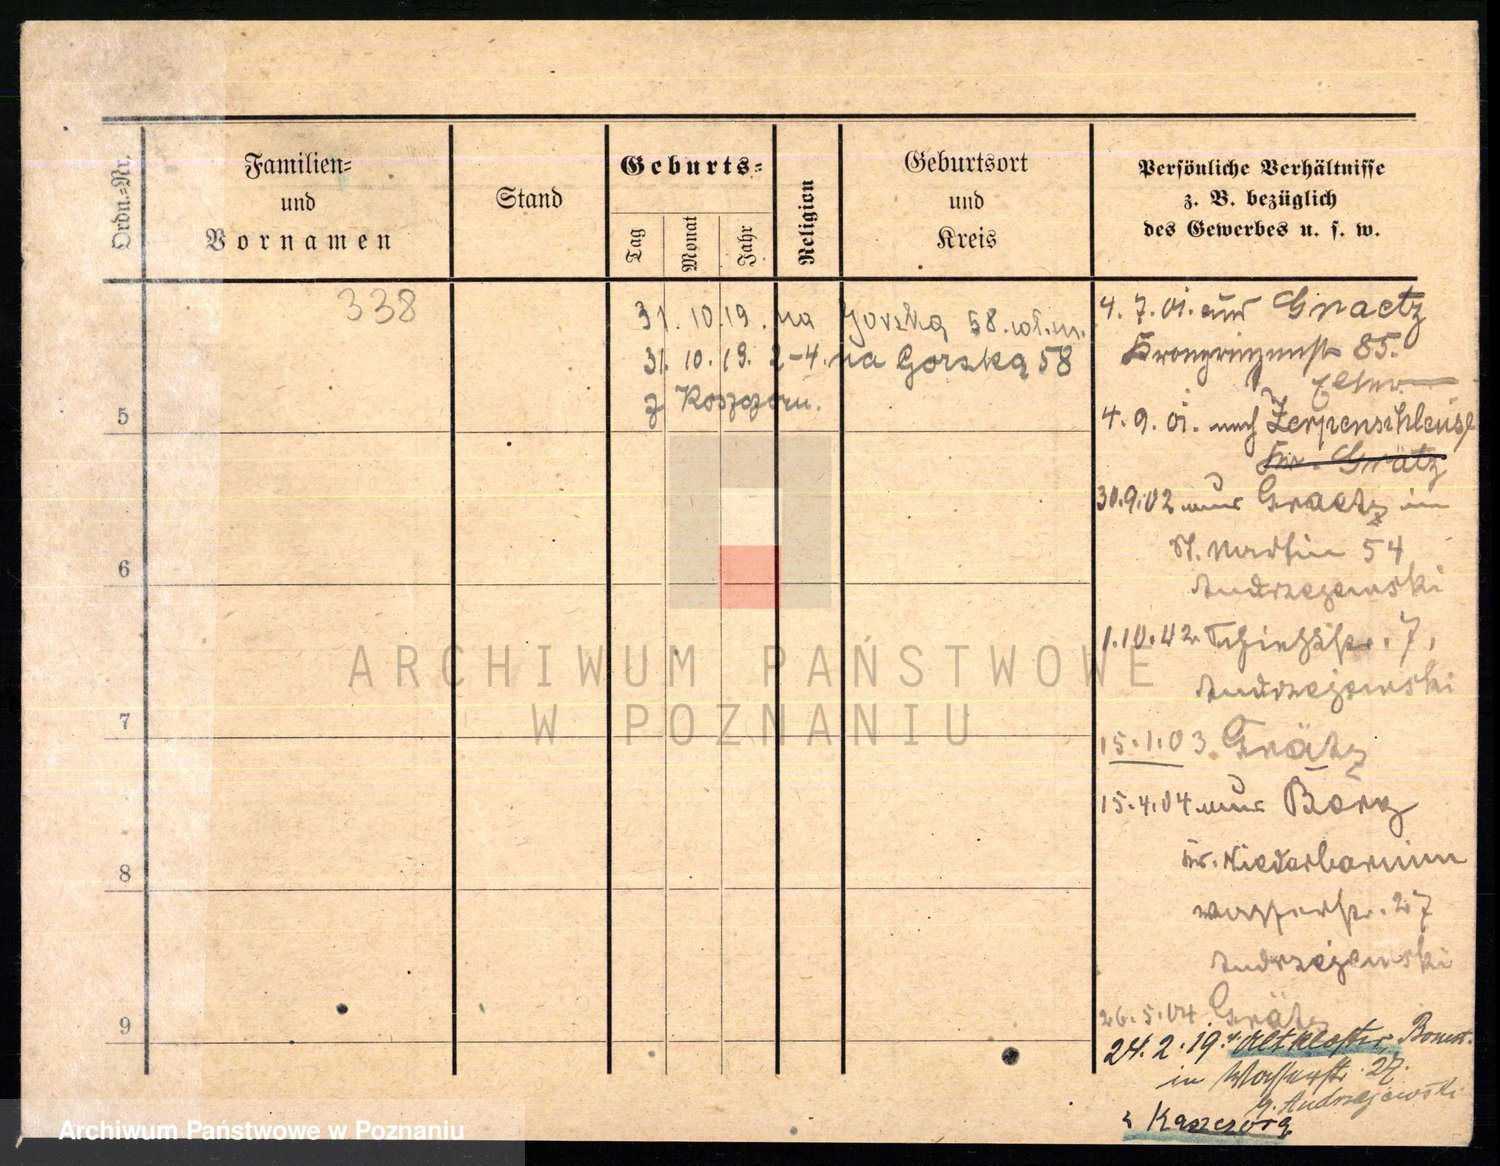 Ordn.-Nr.
Familien-
und
Vornamen
Stand
Geburts-
Tag
Monat
Jahr
Religion
Geburtsort
und
Kreis
Persönliche Verhältnisse
z. B. bezüglich
des Gewerbes u. s. w.
338
31. 10. 19. na Górską 58.
31. 10. 19. 2-4. na Gorską 58
z
5
6
7
8
9
4. 7. 01. aus Graetz
85.
Eltern
4. 9. 01. nach Zerpenschleuse
Kr. Grätz
30.9.02 aus Graetz in
St. Martin 54
Andrzejewski
1.10.02 7.
Andrzejewski
15.1.03. Grätz
15.4.04 aus
Kr. Niederbarnim
Wasserstr. 27
Andrzejewski
26.5.04 Grätz
24.2.19 v Altkloster, Bomst.
in Wasserstr. 27.
Andrzejewski
z Kaszczora
ARCHIWUM PAŃSTWOWE
W POZNANIU
Archiwum Państwowe w Poznaniu